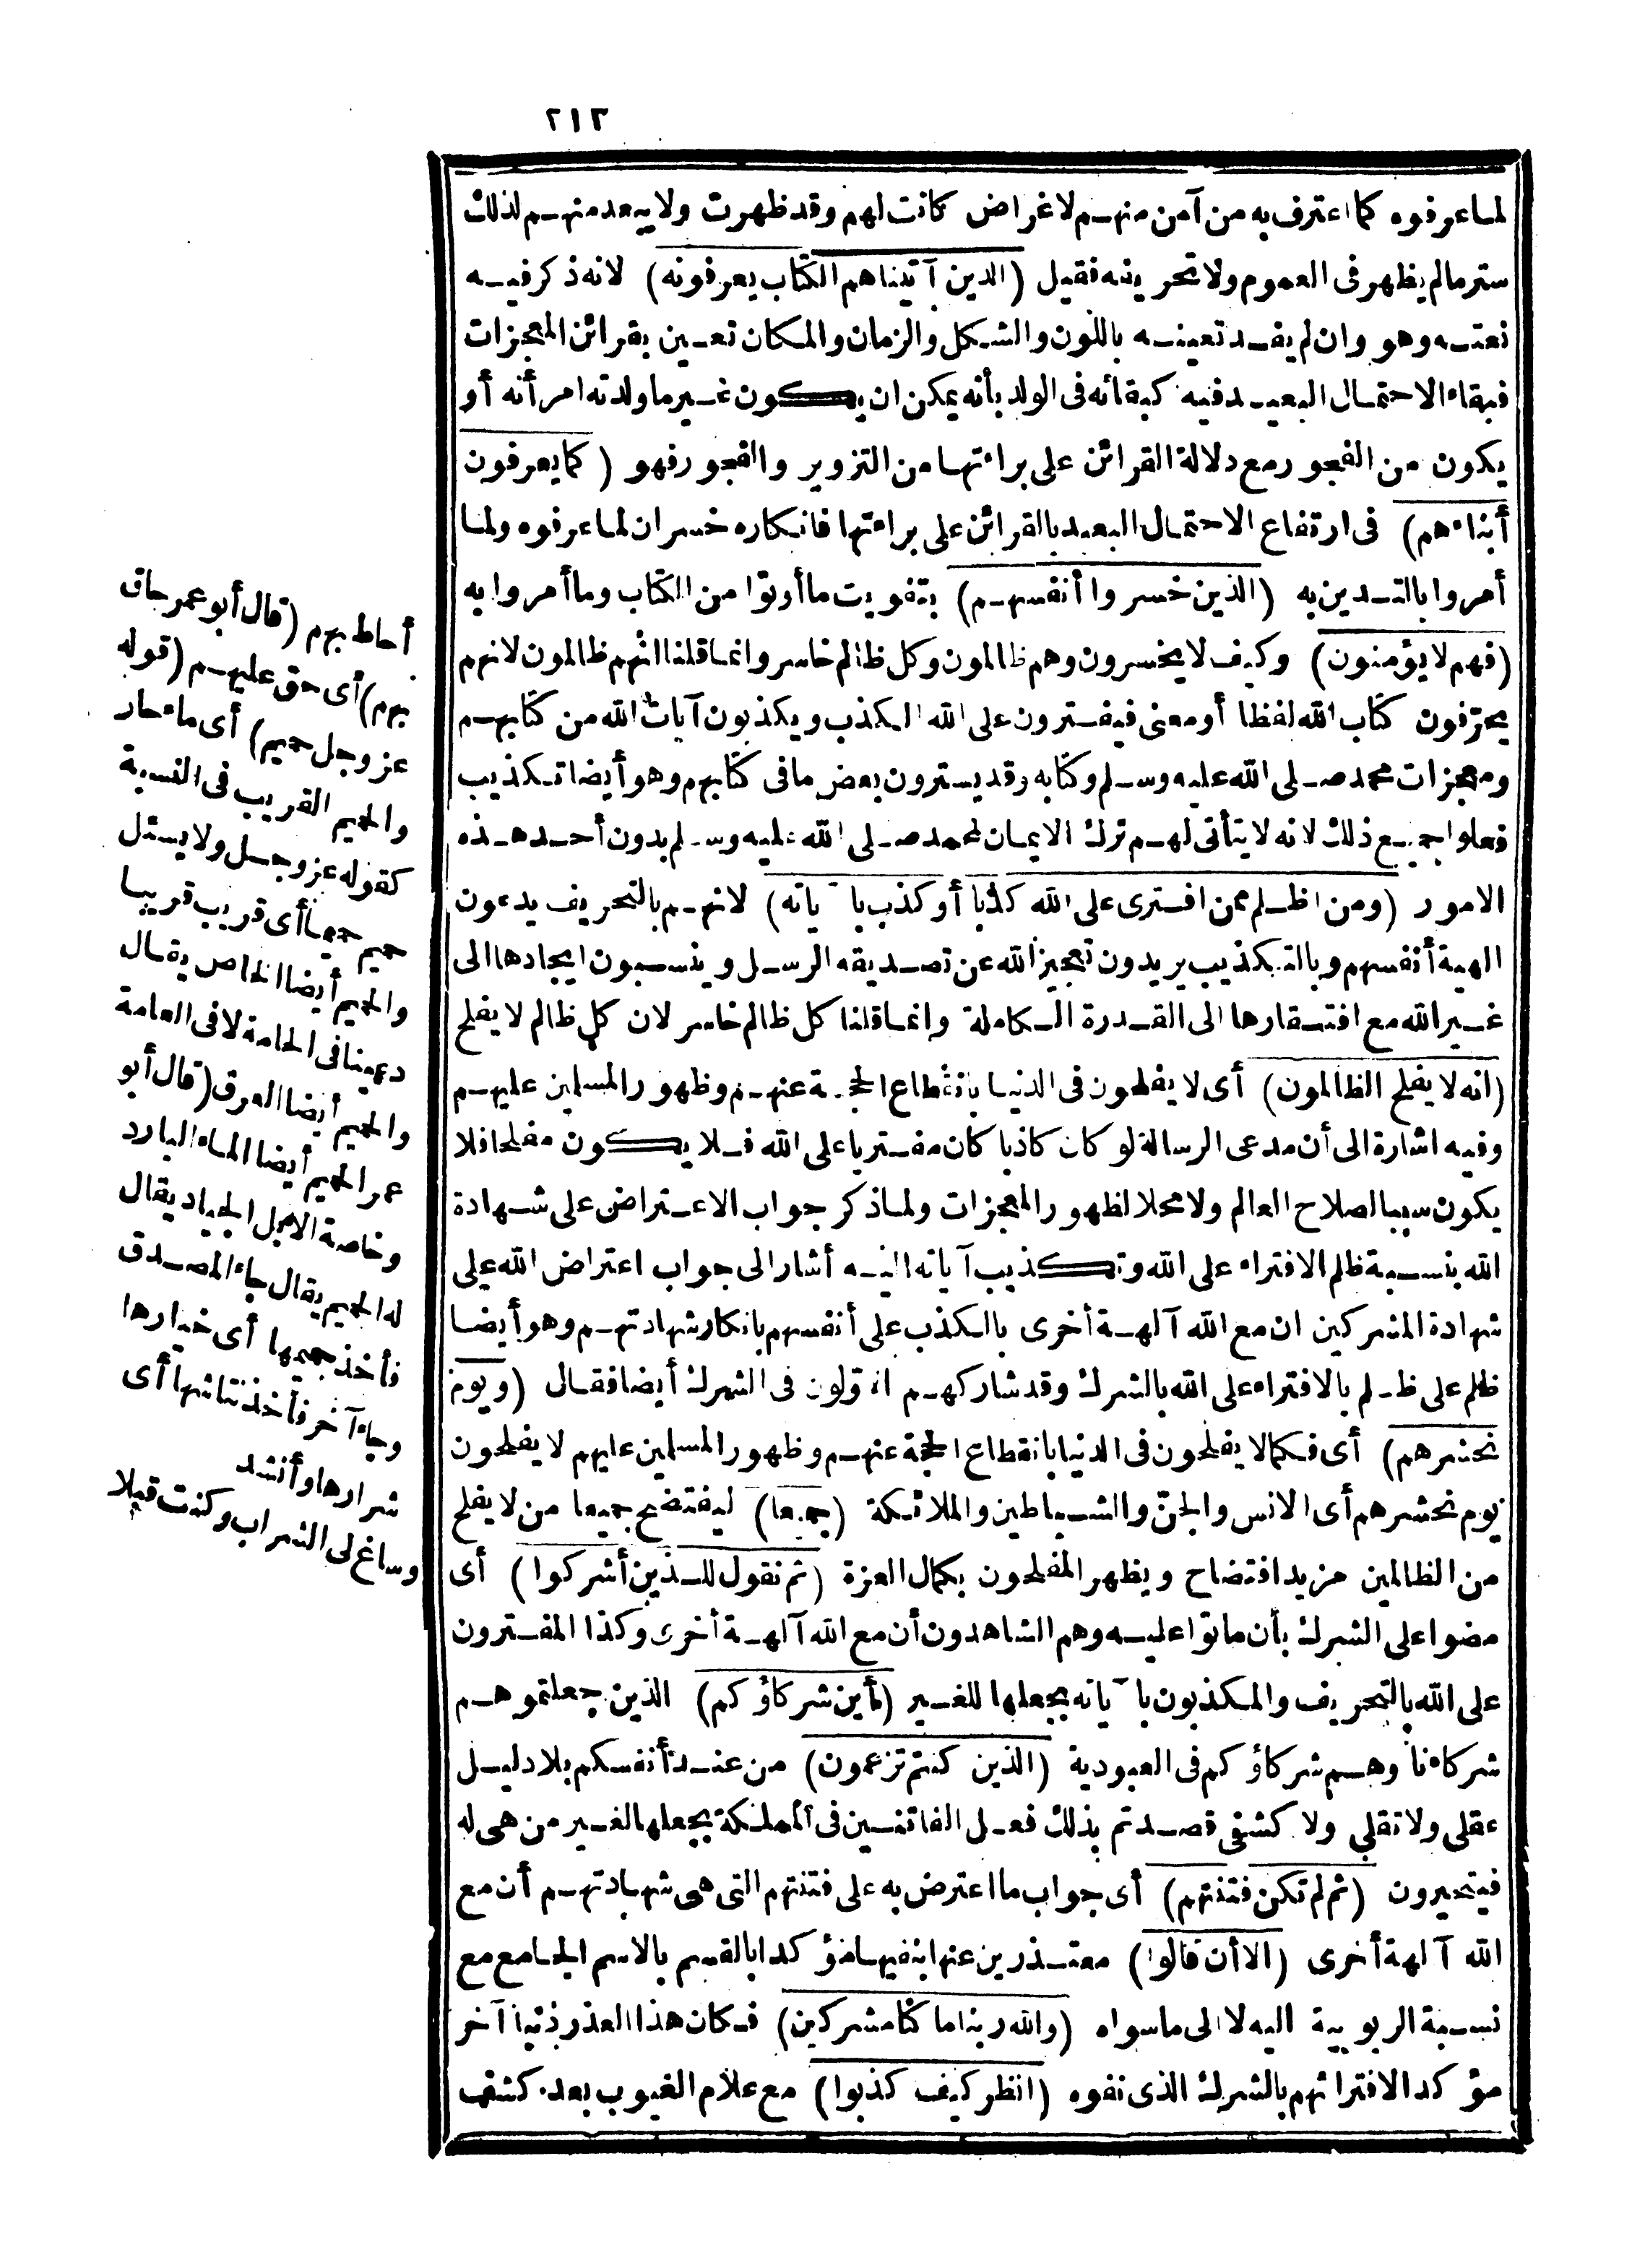 ٢١٢
لما عرفوه كما اعترف به من آمن منهم لاغراض كانت لهم وقد ظهرت ولا يبعد منهم لذلك
ستر مالم يظهر فى العموم ولا تحريفه فقيل (الذين آتيناهم الكتاب يعرفونه) لانه ذكر فيه
نعته وهو وان لم يفد تعيينه باللون والشكل والزمان والمكان تعين بقرائن المعجزات
فبقاء الاحتمال البعيد فيه كبقائه فى الولد بأنه يمكن ان يكون غير ما ولدته امرأته أو
يكون من الفجور مع دلالة القرائن على براءتها من التزوير والفجور فهو (كما يعرفون
أبناءهم) فى ارتفاع الاحتمال البعيد بالقرائن على براءتها فانكاره خسران لما عرفوه ولما
أمروا بالتدين به (الذين خسروا أنفسهم) بتفويت ما أوتوا من الكتاب وما أمروا به
(فهم لا يؤمنون) وكيف لا يخسرون وهم ظالمون وكل ظالم خاسر وانما قلنا انهم ظالمون لانهم
يحرّفون كتاب الله لفظا أو معنى فيفترون على الله الكذب ويكذبون آيات الله من كتابهم
ومعجزات محمد صلى الله عليه وسلم وكتابه وقد يسترون بعض ما فى كتابهم وهو أيضا تكذيب
فعلوا جميع ذلك لانه لا يتأتى لهم ترك الايمان لمحمد صلى الله عليه وسلم بدون أحد هذه
الامور (ومن اظلم ممن افترى على الله كذبا أو كذب بآياته) لانهم بالتحريف يدعون
الهية أنفسهم وبالتكذيب يريدون تعجيز الله عن تصديقه الرسل وينسبون ايجادها الى
غير الله مع افتقارها الى القدرة الكاملة وانما قلنا كل ظالم خاسر لان كل ظالم لا يفلح
(انه لا يفلح الظالمون) أى لا يفلحون فى الدنيا بانقطاع الحجة عنهم وظهور المسلمين عليهم
وفيه اشارة الى أن مدعى الرسالة لو كان كاذبا كان مفتريا على الله فلا يكون مفلحا فلا
يكون سببا لصلاح العالم ولا محلا لظهور المعجزات ولما ذكر جواب الاعتراض على شهادة
الله بنسبة ظلم الافتراء على الله وتكذيب آياته اليه أشار الى جواب اعتراض الله على
شهادة المشركين ان مع الله آلهة أخرى بالكذب على أنفسهم بانكار شهادتهم وهو أيضا
ظلم على ظلم بالافتراء على الله بالشرك وقد شاركهم القولون فى الشرك أيضا فقال (ويوم
نحشرهم) أى فكما لا يفلحون فى الدنيا بانقطاع الحجة عنهم وظهور المسلمين عليهم لا يفلحون
يوم نحشرهم أى الانس والجنّ والشياطين والملائكة (جميعا) ليفتضح جميعا من لا يفلح
من الظالمين مزيد افتضاح ويظهر المفلحون بكمال العزة (ثم نقول للذين أشركوا) أى
مضوا على الشرك بأن ماتوا عليه وهم الشاهدون أن مع الله آلهة أخرى وكذا المفترون
على الله بالتحريف والمكذبون بآياته بجعلها للغير (أين شركاؤكم) الذين جعلتموهم
شركاءنا وهم شركاؤكم فى العبودية (الذين كنتم تزعمون) من عند أنفسكم بلا دليل
عقلى ولا نقلى ولا كشفى قصدتم بذلك فعل الفاتنين فى المملكة بجعلها لغير من هى له
فيتحيرون (ثم لم تكن فتنتهم) أى جواب ما اعترض به على فتنتهم التى هى شهادتهم أن مع
الله آلهة أخرى (الا أن قالوا) معتذرين عنها بنفيها مؤكدا بالقسم بالاسم الجامع مع
نسبة الربوبية اليه لا الى ما سواه (والله ربنا ما كنا مشركين) فكان هذا العذر ذنبا آخر
مؤكدا لافترائهم بالشرك الذى نفوه (انظر كيف كذبوا) مع علام الغيوب بعد كشف
أحاط بهم (قال أبو عمر حاق
بهم) أى حق عليهم (قوله
عز وجل حميم) أى ماء حار
والحميم القريب فى النسبة
كقوله عز وجل ولا يسئل
حميم حميما أى قريب قريبا
والحميم أيضا الخاص يقال
دعينا فى الحامة لا فى العامة
والحميم أيضا العرق (قال أبو
عمر الحميم أيضا الماء البارد
وخاصة الابل الجياد يقال
له الحميم يقال جاء المصدق
فأخذ حميمها أى خيارها
وجاء آخر فأخذ نتاشها أى
شرارها وأنشد
وساغ لى الشراب وكنت قبلا